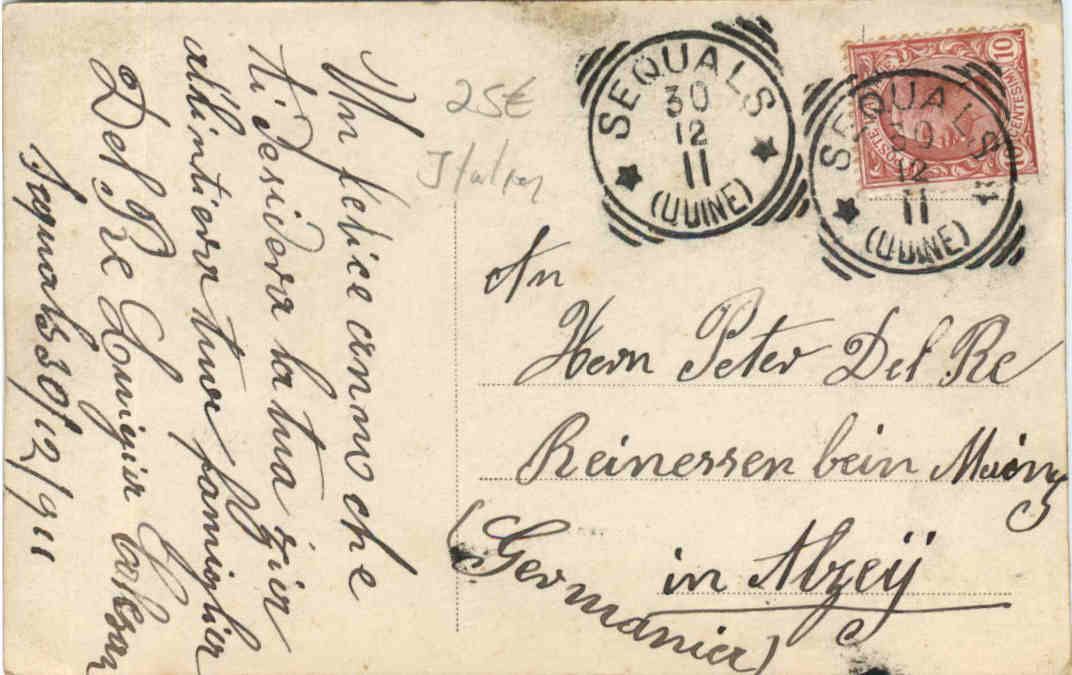 Un felice anno che
ti desidera la tua zia
all intiera tua famiglia
Del Re Luigia
Sequals 30/12/911
25€
SEQUALS
30
12
11
(UDINE)
SEQUALS
30
12
11
(UDINE)
POSTE
10
CENTESIMI
An
Hern Peter Del Re
bein
in Alzeÿ
(Germania)